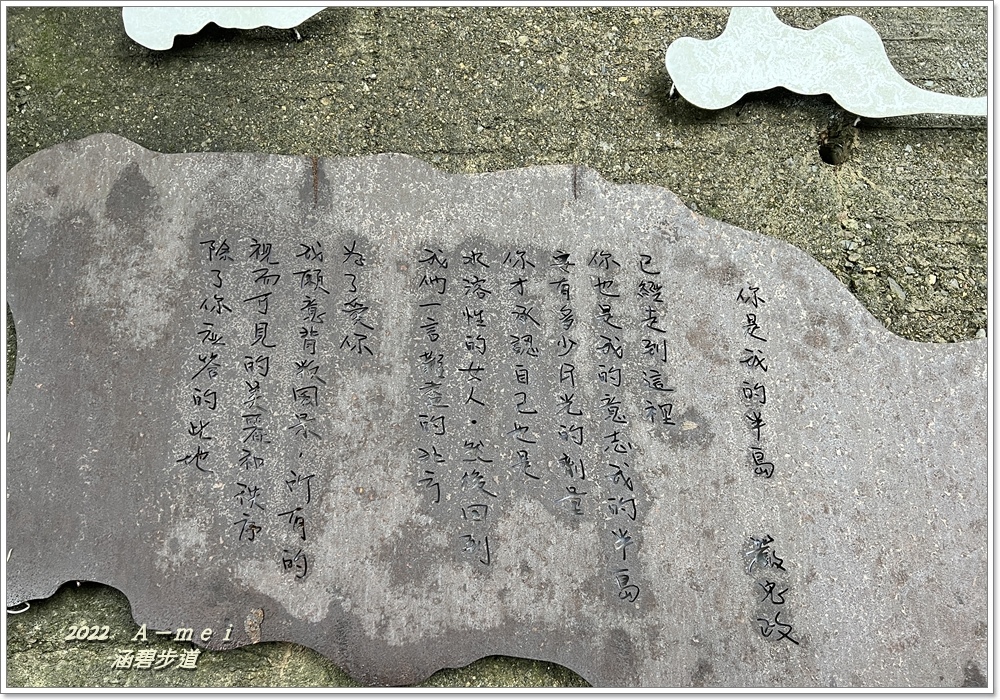 你是我的半島 嚴忠政
已經走到這裡
你也是我的意志我的半島
要有多少月光的劑量
你才承認自己也是
水溶性的女人。然後回到
我們一言難盡的北方
为了愛你
我願意背叛，所有的
視而可見的美麗和秩序
除了你应答的此地
2022. A-mei
涵碧步道